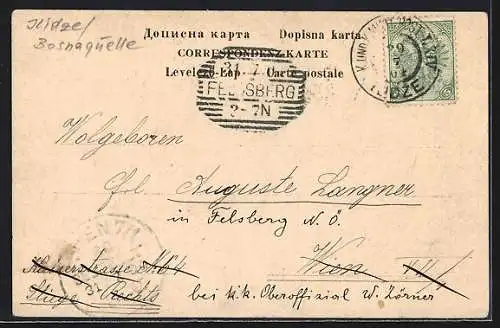 Ilidze/
Bosnaquelle
Дописна карта Dopisna karta
CORRESPONDENZ-KARTE
Levelező-Lap Carte postale
K. UND K. MILIT. POST
29
7
ILIDZE
31 7
FELDSBERG
2-7N
Wolgeboren
Frl. Auguste Langner
in Felsberg N. Ö.
Wien
Kaiserstrasse No 4
Stiege Rechts
bei k.k. Oberoffizial W. Zörner